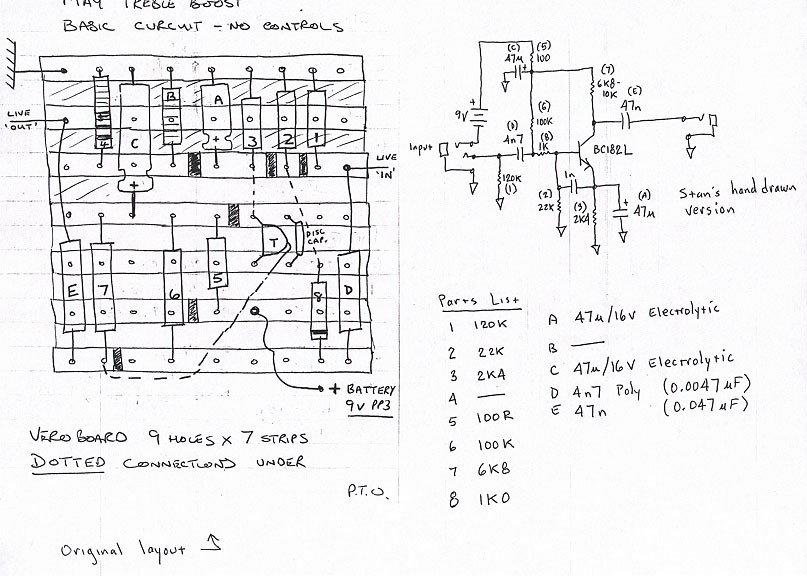 MAY TREBLE BOOST
BASIC CURCUIT - NO CONTROLS
LIVE
'OUT'
B
A
4
C
+
3
2
1
LIVE
'IN'
+
T
DISC
CAP.
E
7
6
5
8
D
+ BATTERY
9V PP3
VEROBOARD 9 HOLES X 7 STRIPS
DOTTED CONNECTIONS UNDER
P.T.O.
Original layout
(C)
47µ
+
(5)
100
(7)
6K8-
10K
(E)
47n
+
9V
(6)
100K
(D)
4n7
(8)
1K
BC182L
Input
120K
(1)
1n
(2)
22K
(3)
2K4
+
(A)
47µ
Stan's hand drawn
version
Parts List
1 120K
2 22K
3 2K4
4 —
5 100R
6 100K
7 6K8
8 1K0
A 47µ/16V Electrolytic
B —
C 47µ/16V Electrolytic
D 4n7 Poly (0.0047µF)
E 47n (0.047µF)